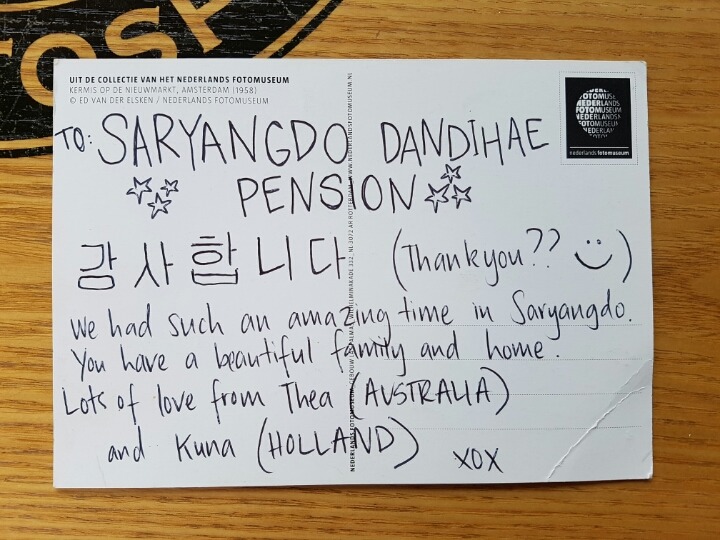 OTOSP
UIT DE COLLECTIE VAN HET NEDERLANDS FOTOMUSEUM
KERMIS OP DE NIEUWMARKT, AMSTERDAM (1958)
© ED VAN DER ELSKEN / NEDERLANDS FOTOMUSEUM
nederlands fotomuseum
TO: SARYANGDO DANDIHAE
PENSION
감사합니다 (Thankyou??)
We had such an amazing time in Saryangdo.
You have a beautiful family and home.
Lots of love from Thea (AUSTRALIA)
and Kuna (HOLLAND)
XOX